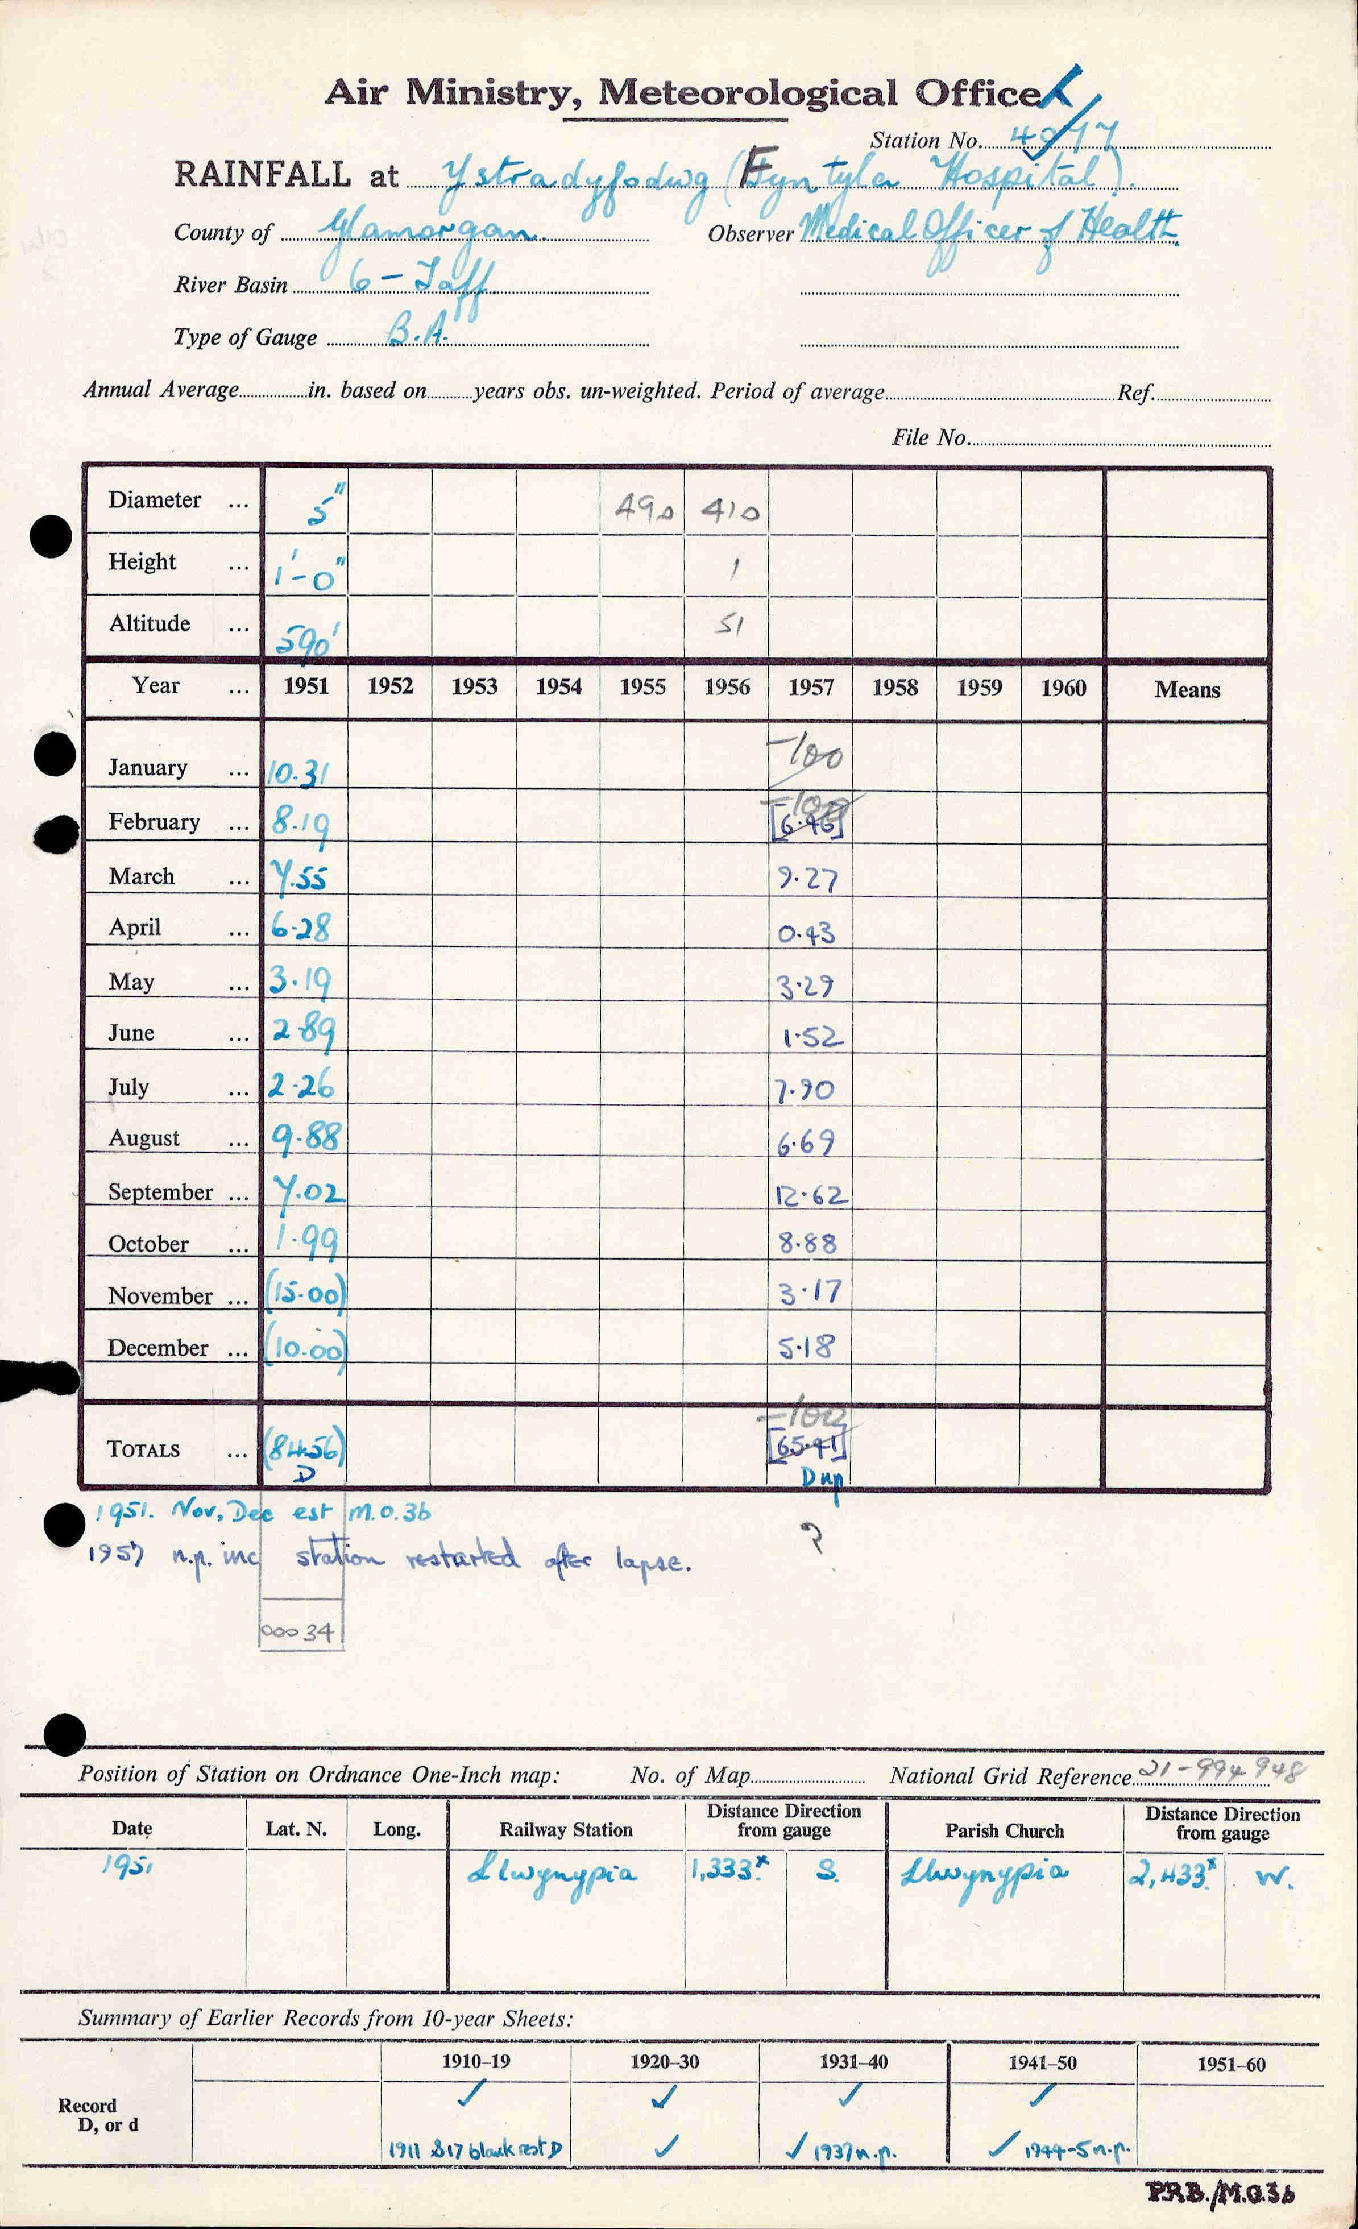 Air Ministry, Meteorological Office
Station No. 4977
RAINFALL at Ystradyfodwg (Fyntyla Hospital).
County of Glamorgan. Observer Medical Officer of Health
River Basin 6 - Taff
Type of Gauge B.A.
Annual Average in. based on years obs. un-weighted. Period of average Ref.
File No.
Diameter ... 5" 490 410
Height ... 1'-0" 1
Altitude ... 590' 51
Year ... 1951 1952 1953 1954 1955 1956 1957 1958 1959 1960 Means
January ... 10.31 -100
February ... 8.19 -100 [6.46]
March ... 7.55 9.27
April ... 6.28 0.43
May ... 3.19 3.29
June ... 2.89 1.52
July ... 2.26 7.90
August ... 9.88 6.69
September ... 7.02 12.62
October ... 1.99 8.88
November ... (15.00) 3.17
December ... (10.00) 5.18
-100
TOTALS ... (84.56) [65.41]
D Dnp
1951. Nov, Dec est M.O.3b ?
1957 n.p. inc station restarted after lapse.
00034
Position of Station on Ordnance One-Inch map: No. of Map National Grid Reference 21-994 948
Date Lat. N. Long. Railway Station Distance Direction from gauge Parish Church Distance Direction from gauge
1951 Llwynypia 1,333.x S. Llwynypia 2,433.x W.
Summary of Earlier Records from 10-year Sheets:
1910–19 1920–30 1931–40 1941–50 1951–60
Record ✓ ✓ ✓ ✓
D, or d
1911 & 17 blank rest D ✓ ✓ 1937 n.p. ✓ 1944-5 n.p.
P.R.B./M.O.3b